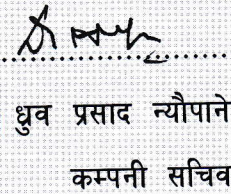 ध्रुव प्रसाद न्यौपाने
कम्पनी सचिव